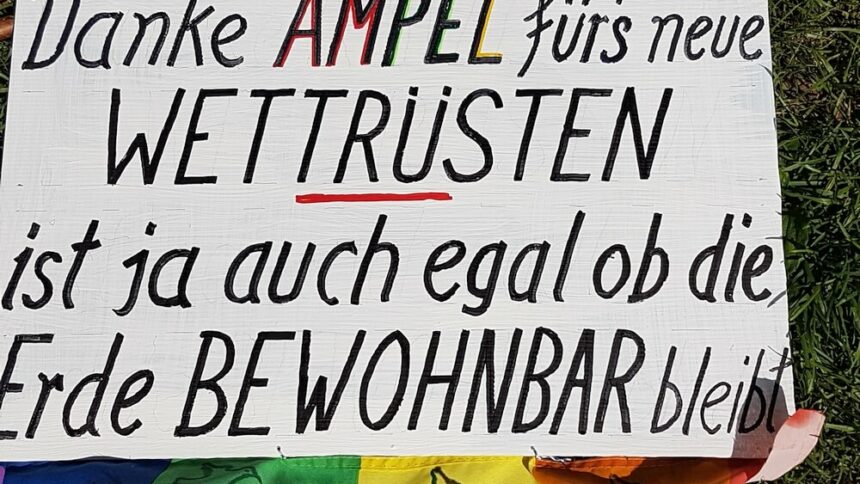 Danke AMPEL fürs neue
WETTRÜSTEN
ist ja auch egal ob die
Erde BEWOHNBAR bleibt